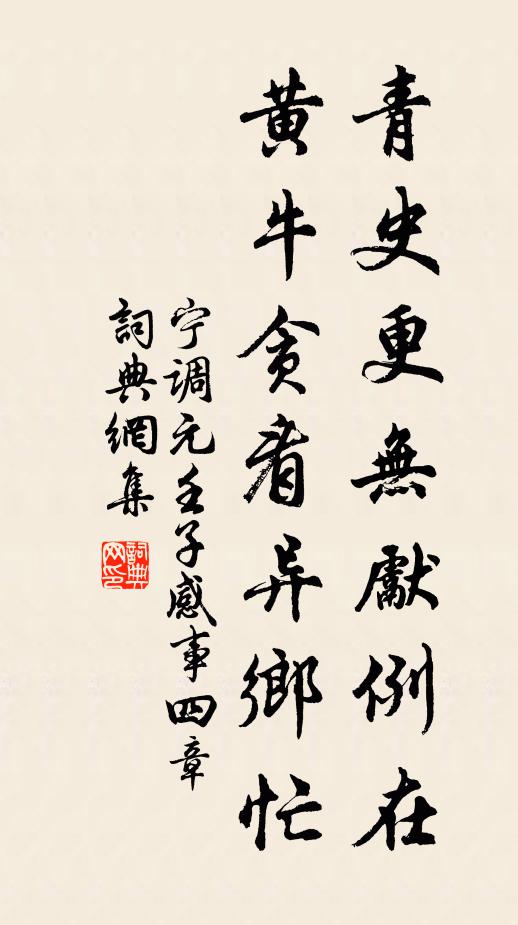 青史更無獻例在
黃牛貪看异鄉忙
宁調元壬子感事四章
詞典網集
詞典網印